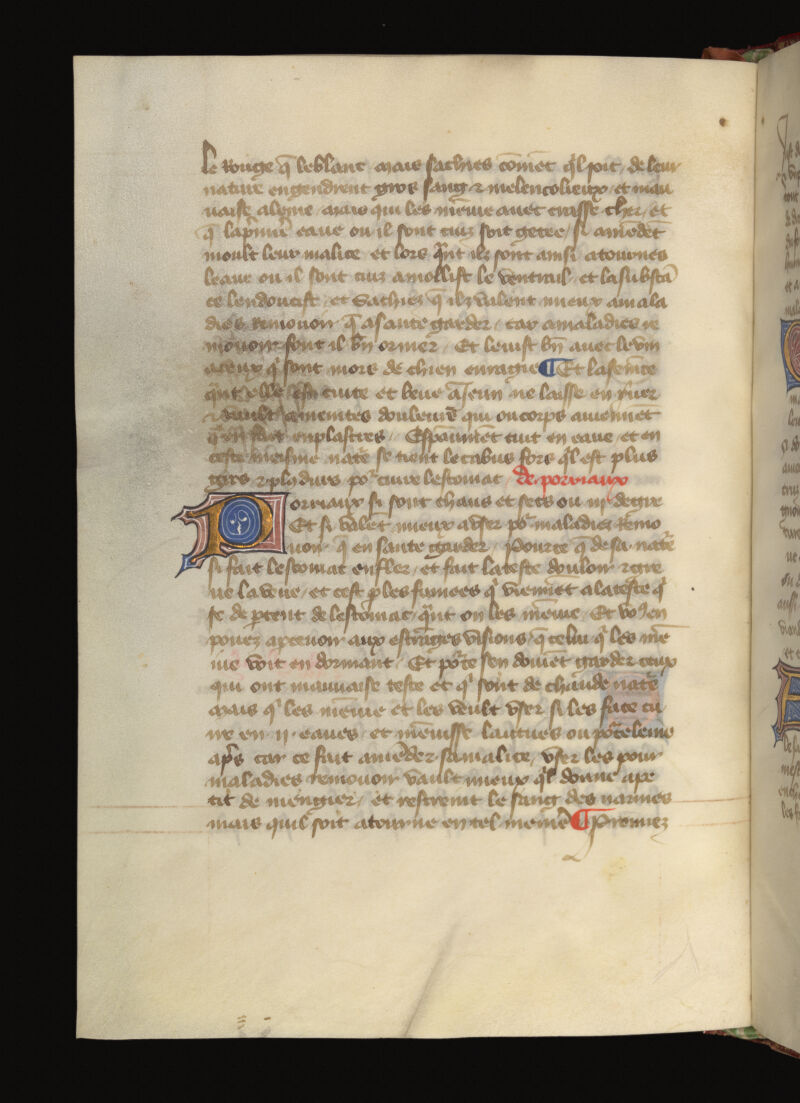 le rouge q̄ le blanc mais sachies cōmēt q̄l soit de leur
nature engendrent gros sang ⁊ melencolieux et mau
uaise aleine mais qui les mēiue auec crasse cher et
q̄ la p̄miē eaue ou il sont cuiz soit getee si amēdēt
moult leur malice et lors q̄nt ilz sont ainsi atournes
leaue ou il sont cuiz amollist le ventrail et la substā
ce lendoucist et Sachiez q̄ ilz valent mieux a mala
dies remouoir q̄ a sante garder car a maladies re
mouoir sont il bn̄ Et leiust bn̄ auec le vin
a ceux q̄ sont mors de chien enragie ¶ Et la semēce
q̄nt elle est cuite et beue a Jeun ne laisse en yurer
⁊ vault douleurs qui ou corps auiennēt
enplastres Espāment cuit en eaue et en
ceste meisme natē se tient le cabus fors q̄l est plus
gros ⁊ plus durs por cuire lestomac de porriaux
Porriaux si sont chaus et secs ou iiie degre
Et si valēt mieux a vser por maladies Remo
uoir q̄ en sante garder Pource q̄ de sa natē
si fait lestomac enfler et fait la teste douloir ⁊ gre
ue la veue et cest p les fumees q̄ viennēt a la teste q̄
se de ptent de lestomac q̄nt on les mēiue Et vo9 en
pouez apceuoir aux estrāges visions q̄ celui q̄ les mē
iue voit en dormant Et por ce sen doiuēt garder ceux
qui ont mauuaise teste et q̄ sont de chaude natē
mais q̄ les mēiue et les veult vser si les face cu
ire en ii eaues et mēuisse laitues ou porceleine
aps̄ car ce fait amēder sa malice vser les pour
maladies remouoir vault mieux q̄l donne ape
tit de mēngier et restreint le sang des narines
mais quil soit atourne en tel meniē ¶ Prennez